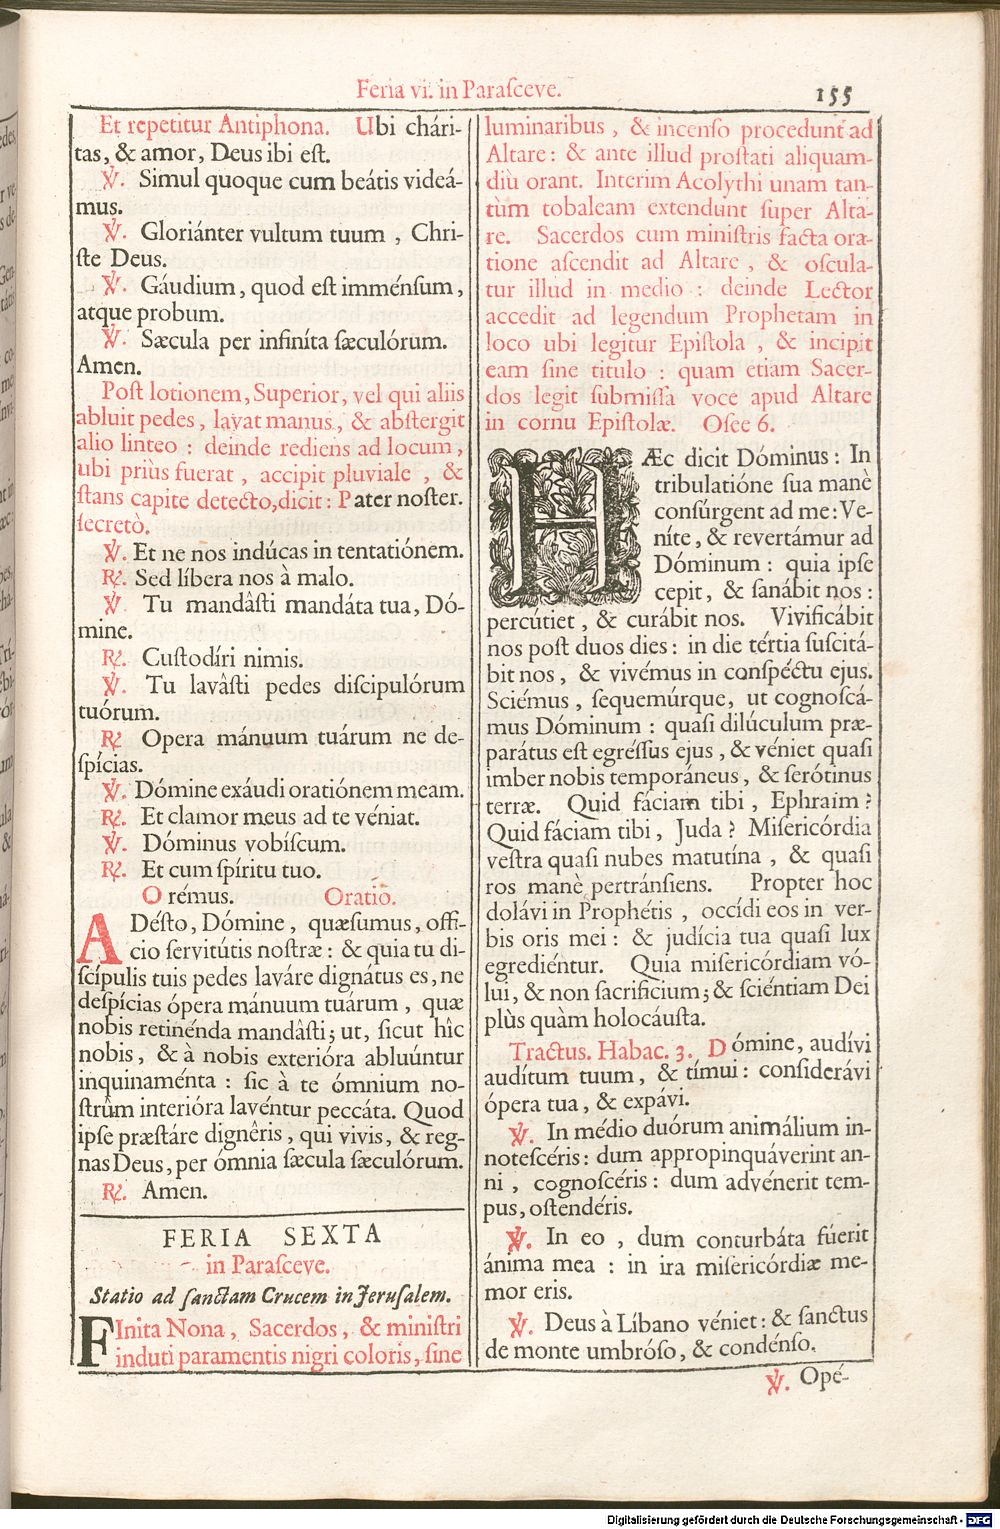 Feria vi. in Paraſceve.
155
Et repetitur Antiphona. Ubi chári-
tas, & amor, Deus ibi eſt.
℣. Simul quoque cum beátis videá-
mus.
℣. Gloriánter vultum tuum , Chri-
ſte Deus.
℣. Gáudium, quod eſt imménſum,
atque probum.
℣. Sæcula per infiníta ſæculórum.
Amen.
Poſt lotionem, Superior, vel qui aliis
abluit pedes, lavat manus, & abſtergit
alio linteo : deinde rediens ad locum,
ubi priùs fuerat, accipit pluviale , &
ſtans capite detecto,dicit: Pater noſter.
ſecretò.
℣. Et ne nos indúcas in tentatiónem.
℟. Sed líbera nos à malo.
℣. Tu mandâſti mandáta tua, Dó-
mine.
℟. Cuſtodíri nimis.
℣. Tu lavâſti pedes diſcipulórum
tuórum.
℟. Opera mánuum tuárum ne de-
ſpícias.
℣. Dómine exáudi oratiónem meam.
℟. Et clamor meus ad te véniat.
℣. Dóminus vobíſcum.
℟. Et cum ſpíritu tuo.
O rémus. Oratio.
ADéſto, Dómine, quæſumus, offí-
cio ſervitútis noſtræ: & quia tu di-
ſcípulis tuis pedes laváre dignátus es, ne
deſpícias ópera mánuum tuárum, quæ
nobis retinénda mandâſti; ut, ſicut hîc
nobis, & à nobis exterióra abluúntur
inquinaménta : ſic à te ómnium no-
ſtrûm interióra lavéntur peccáta. Quod
ipſe præſtáre dignêris, qui vivis, & reg-
nas Deus, per ómnia ſæcula ſæculórum.
℟. Amen.
FERIA SEXTA
in Paraſceve.
Statio ad ſanctam Crucem in Jeruſalem.
FInita Nona, Sacerdos, & miniſtri
induti paramentis nigri coloris, ſine
luminaribus, & incenſo procedunt ad
Altare: & ante illud proſtati aliquam-
diù orant. Interim Acolythi unam tan-
tùm tobaleam extendunt ſuper Alta-
re. Sacerdos cum miniſtris facta ora-
tione aſcendit ad Altare, & oſcula-
tur illud in medio : deinde Lector
accedit ad legendum Prophetam in
loco ubi legitur Epiſtola, & incipit
eam ſine titulo : quam etiam Sacer-
dos legit ſubmiſſa voce apud Altare
in cornu Epiſtolæ. Oſee 6.
HÆc dicit Dóminus: In
tribulatióne ſua manè
conſúrgent ad me: Ve-
níte, & revertámur ad
Dóminum : quia ipſe
cepit, & ſanábit nos :
percútiet, & curábit nos. Vivificábit
nos poſt duos dies: in die tértia ſuſcitá-
bit nos, & vivémus in conſpéctu ejus.
Sciémus, ſequemúrque, ut cognoſcá-
mus Dóminum : quaſi dilúculum præ-
parátus eſt egréſſus ejus, & véniet quaſi
imber nobis temporáneus, & ſerótinus
terræ. Quid fáciam tibi, Ephraim?
Quid fáciam tibi, Juda? Miſericórdia
veſtra quaſi nubes matutína, & quaſi
ros manè pertránſiens. Propter hoc
dolávi in Prophétis , occídi eos in ver-
bis oris mei : & judícia tua quaſi lux
egrediéntur. Quia miſericórdiam vó-
lui, & non ſacrifícium; & ſciéntiam Dei
plùs quàm holocáuſta.
Tractus. Habac. 3. Dómine, audívi
audítum tuum, & tímui: conſiderávi
ópera tua, & expávi.
℣. In médio duórum animálium in-
noteſcéris: dum appropinquáverint an-
ni , cognoſcéris: dum advénerit tem-
pus, oſtendéris.
℣. In eo , dum conturbáta fúerit
ánima mea : in ira miſericórdiæ me-
mor eris.
℣. Deus à Líbano véniet: & ſanctus
de monte umbróſo, & condénſo.
℣. Opé-
Digitalisierung gefördert durch die Deutsche Forschungsgemeinschaft - DFG